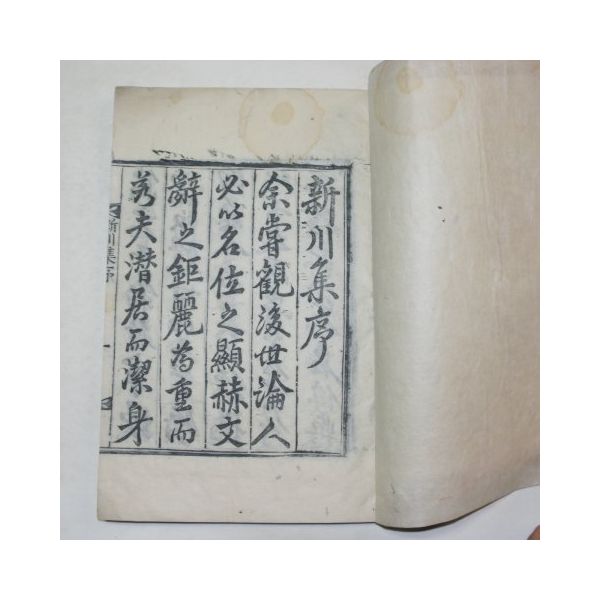 新川集序
余嘗觀後世論人
必以名位之顯赫文
辭之鉅麗爲重而
若夫潜居而潔身
新川集序 一